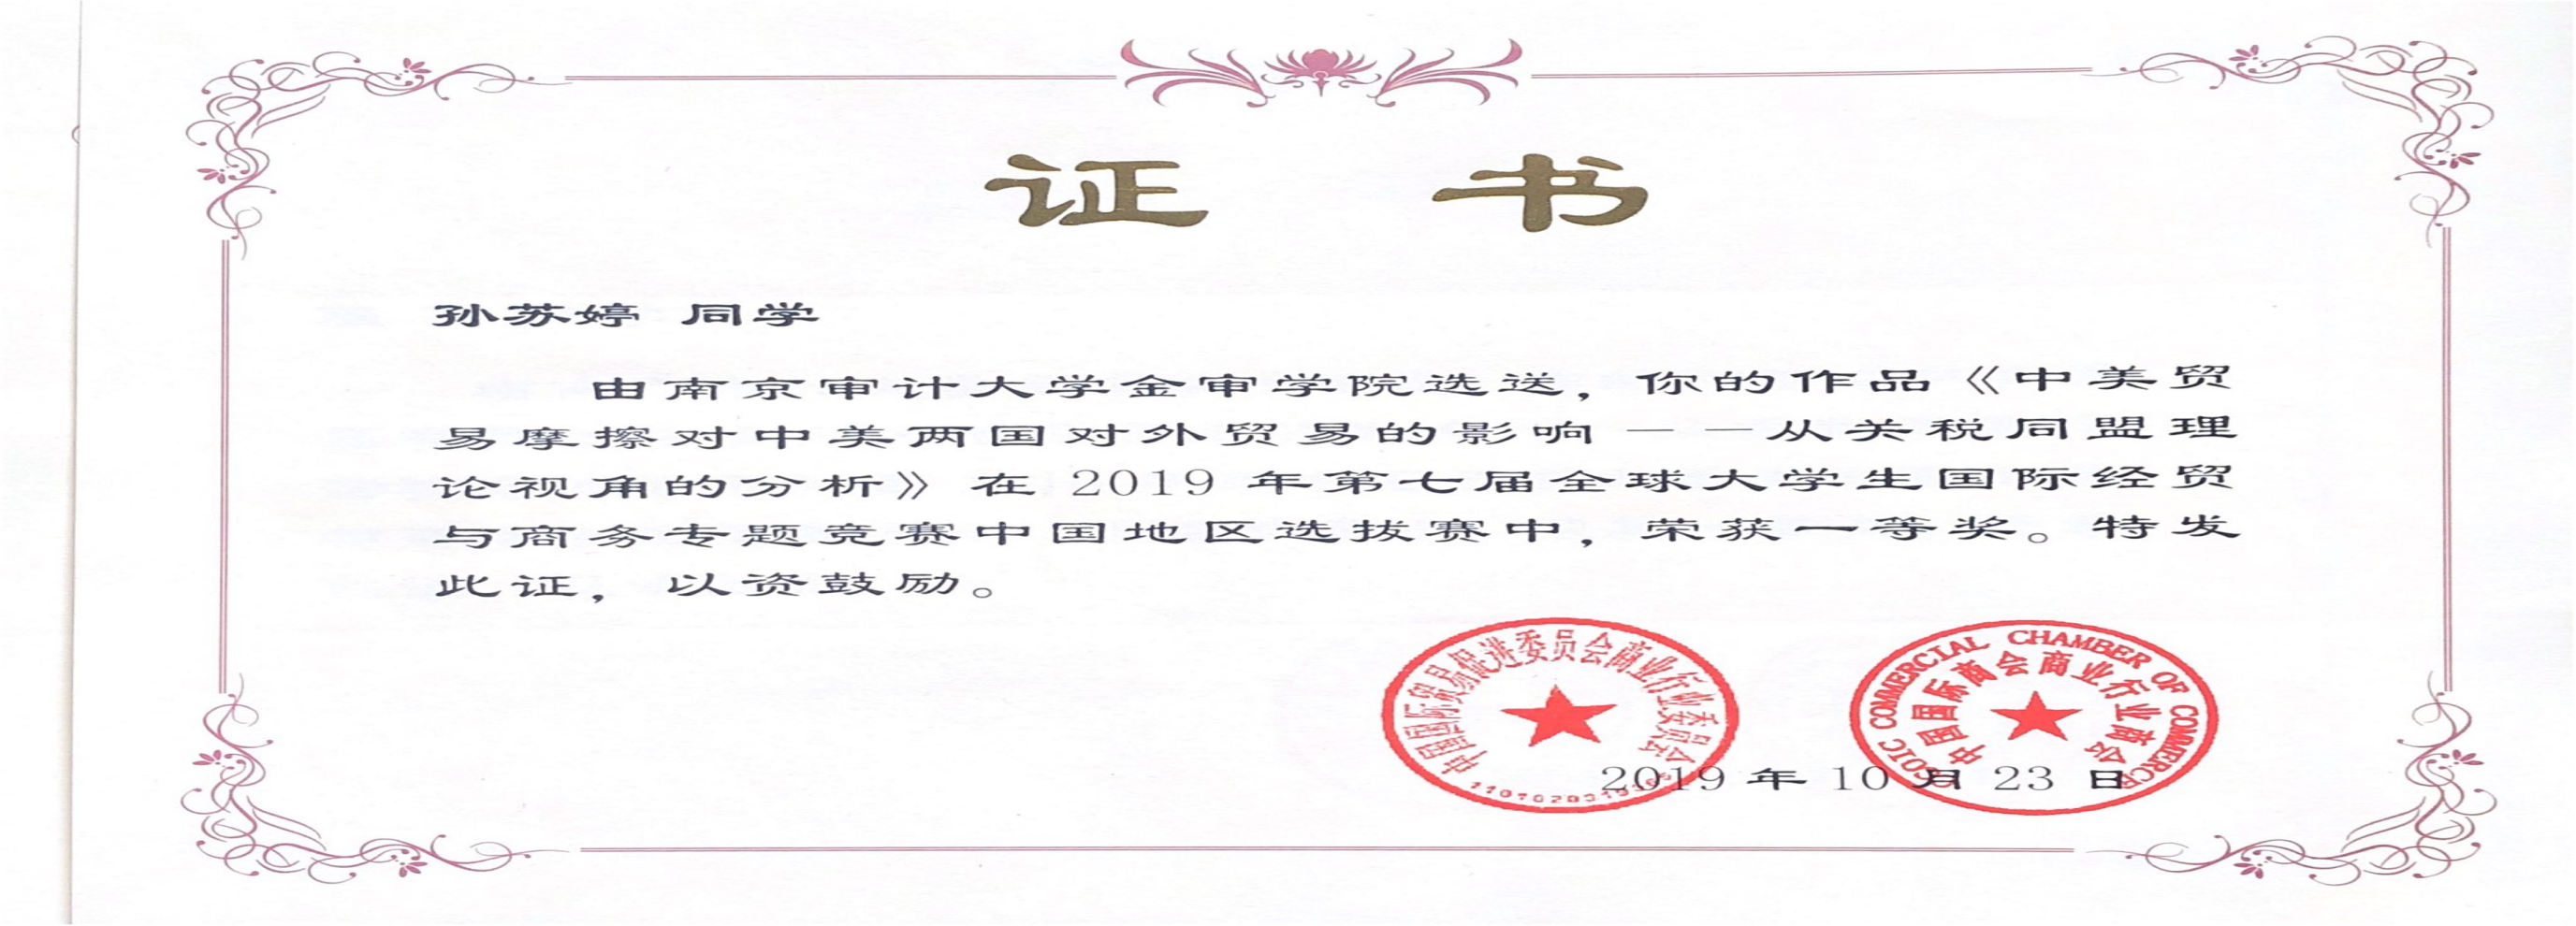 证 书
孙苏婷 同学
由南京审计大学金审学院选送，你的作品《中美贸
易摩擦对中美两国对外贸易的影响——从关税同盟理
论视角的分析》在 2019 年第七届全球大学生国际经贸
与商务专题竞赛中国地区选拔赛中，荣获一等奖。特发
此证，以资鼓励。
中国国际贸易促进委员会商业行业委员会
CCOIC COMMERCIAL CHAMBER OF COMMERCE
中国国际商会商业行业商会
2019 年 10 月 23 日